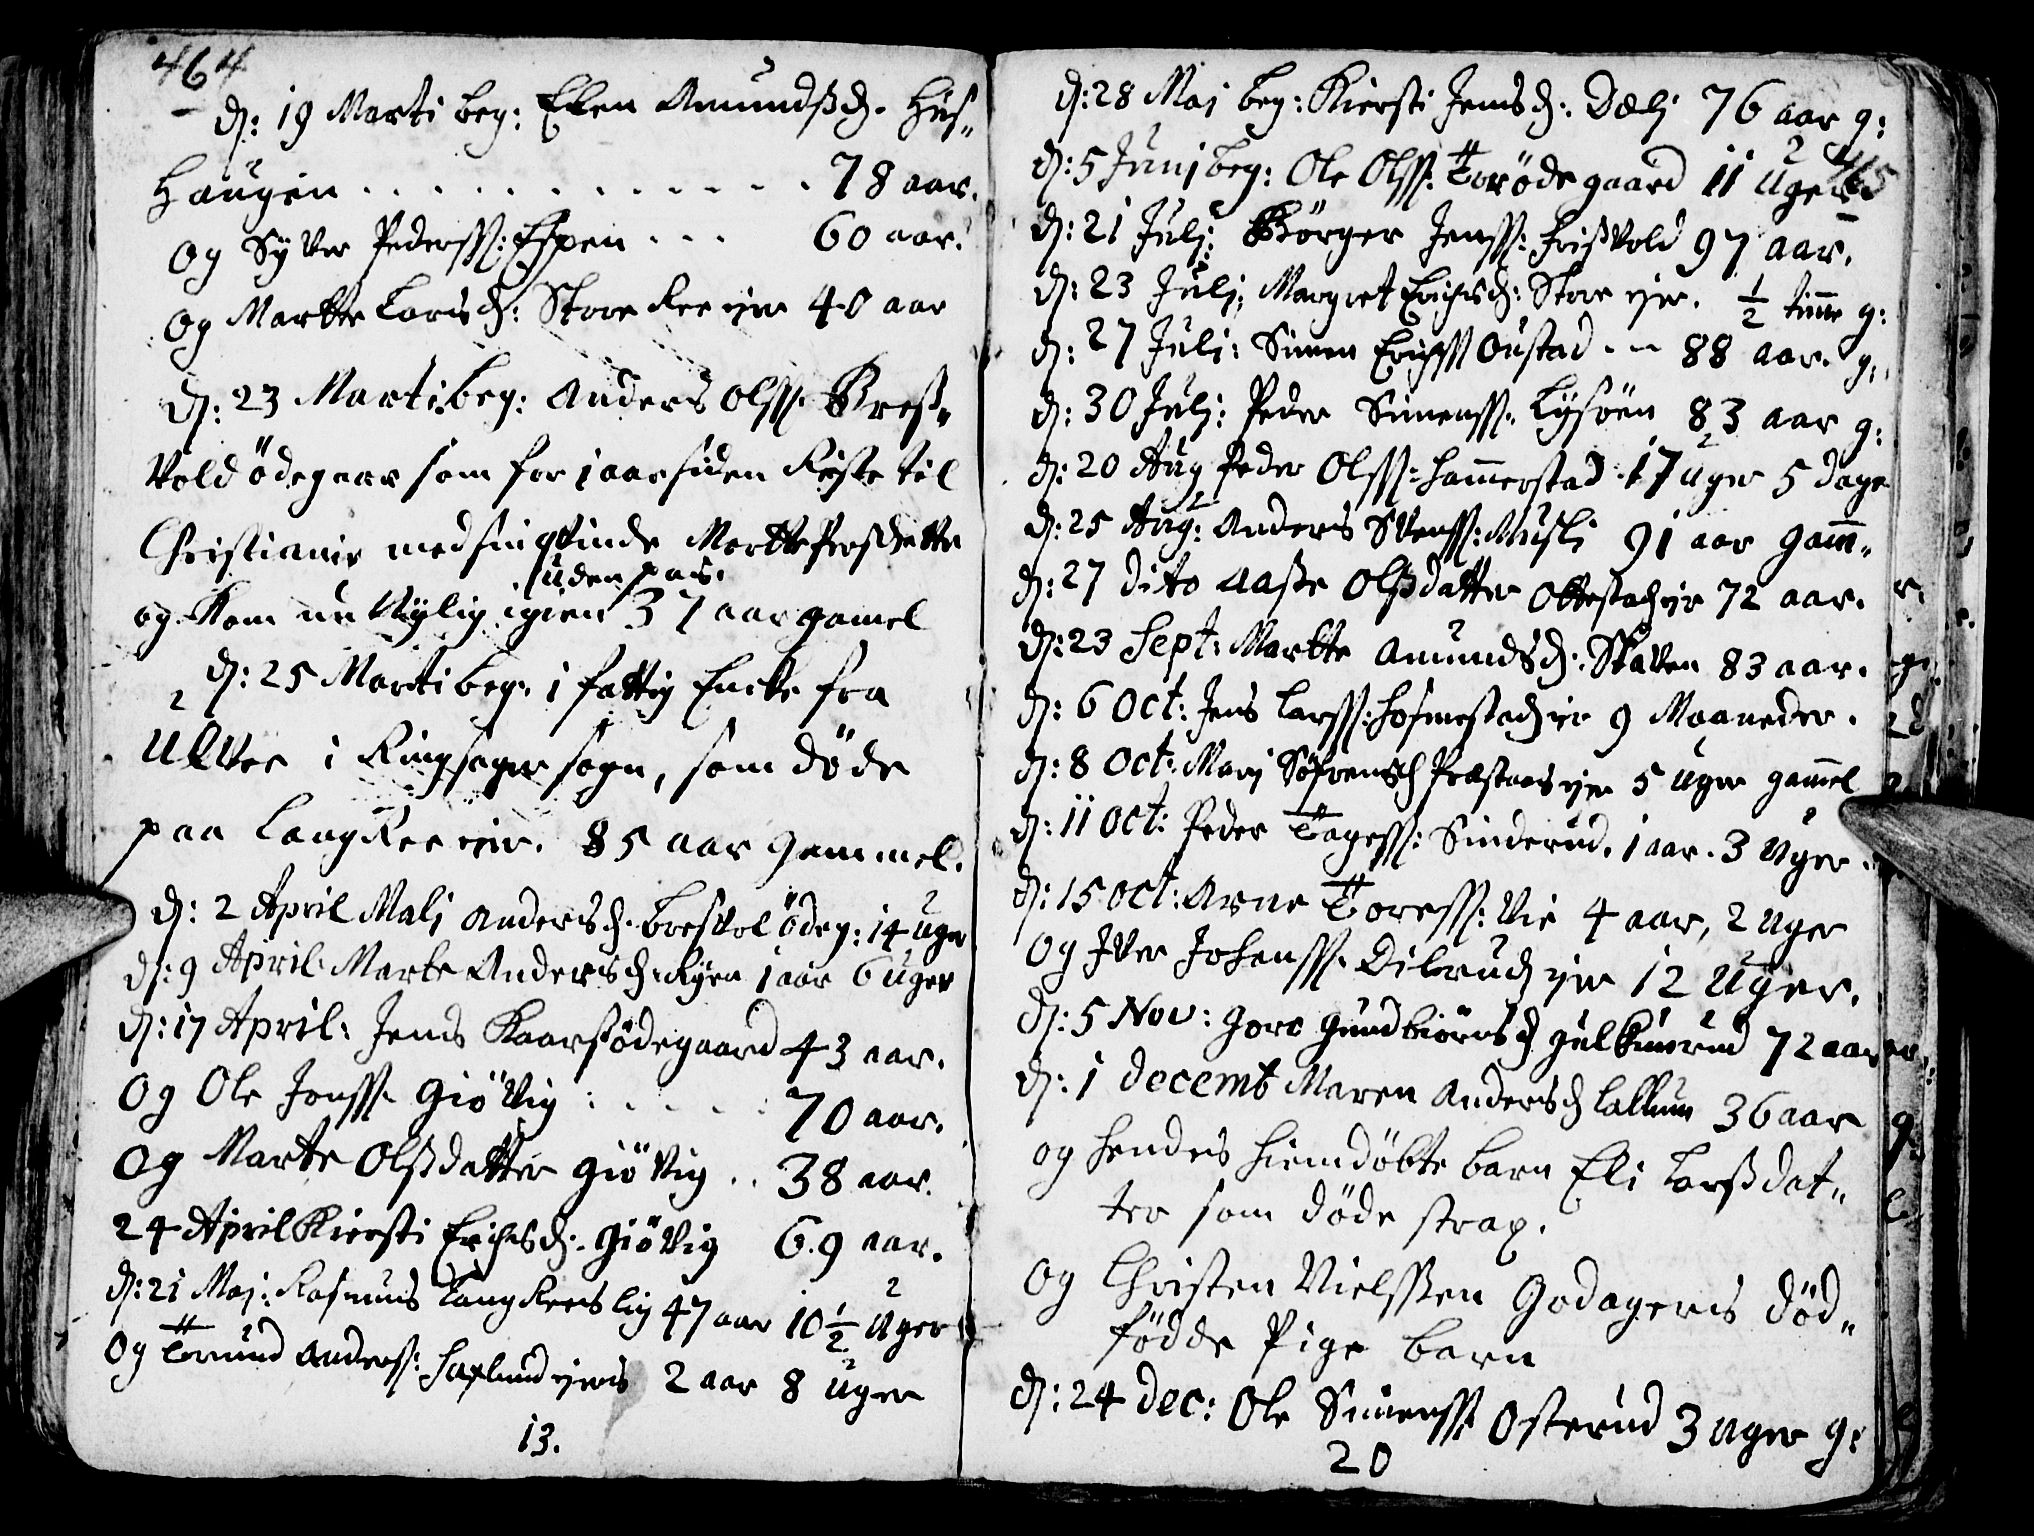 464
d: 19 Marti beg: Ellen Amundsd. Hus-
Haugen . . . . . . . . . . . . . 78 aar.
og Syver Pederss: Espen . . . 60 aar.
og Marthe Larsd: Store Ree eier 40 aar
d: 23 Marti beg: Anders Olss. Bress-
vold ödegaar som for 1 aar siden reiste til
Christiania med sin qvinde Marthe Persdatter
uden pas.
og kom nu nylig igien 37 aar gamel
d: 25 Marti beg. 1 fattig Encke fra
Ulver i Ringsager sogn, som döde
paa Lang Ree eier. 85 aar gammel.
d: 2 April Mali Andersd. Bresvol ödeg: 14 uger
d: 9 April Marte Andersd. Ryen 1 aar 6 uger
d: 17 April: Jens Kaarsödegaard 43 aar.
Og Ole Jonss. Giövig . . . . . 70 aar.
Og Marte Olssdatter Giövig . . 38 aar.
24 April Kiersti Erichsd. Giövig 69 aar.
d: 21 Maj: Rasmus Lang Rees lig 47 aar 10 1/2 uger
Og Trund Anderss: Haslund eiers 2 aar 8 uger
13.
465
d: 28 Maj beg: Kiersti Jensd: Dælj 76 aar g:
d: 5 Junj beg: Ole Olss. Toröde gaard 11 uger
d: 21 Julj: Börger Jenss: Frissvold 97 aar.
d: 23 Julj: Margret Erichsd: Store eier. 1/2 time g:
d: 27 Juli: Simen Erichss Oustad . . 88 aar. g:
d: 30 Julj: Peder Simenss. Lysöen 83 aar g:
d: 20 Aug Peder Olss: Hammerstad 17 uger 5 dage
d: 25 Aug: Anders Svenss: Musli 91 aar gam-
d: 27 dito Aasse Olssdatter Ottestad eier 72 aar.
d: 23 Sept: Marthe Amundsd: Staven 83 aar.
d: 6 Oct: Jens Larss: Hofmestad eier 9 Maaneder.
d: 8 Oct: Marj Söfrensd Præstaas eier 5 uger gammel
d: 11 Oct: Peder Tagess: Sinderud. 1 aar. 3 Uger.
d: 15 Oct: Arne Toress: Vie 4 aar, 2 uger
og Iver Johanss. Dilerud eier 12 Uger.
d: 5 Nov: Goro Gundbiörnsd Gulkinrud 72 aar
d: 1 decemb Maren Andersd Lallum 36 aar
og hendes hiemdöbte barn Eli Larssdat-
ter som döde strax.
og Christen Nielssen Godagers död-
födde Pige barn
d: 24 dec: Ole Simenss Osterud 3 uger g:
20